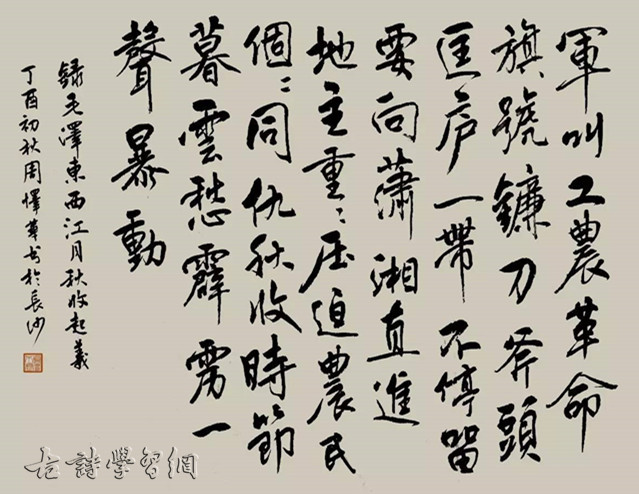 軍叫工農革命
旗號鐮刀斧頭
匡庐一帶不停留
要向蕭湘直進
地主重〻压迫農民
個〻同仇秋收時節
暮雲愁霹雳一
聲暴動
録毛澤東西江月秋收起義
丁酉初秋周懌草书於長沙
古詩學習網